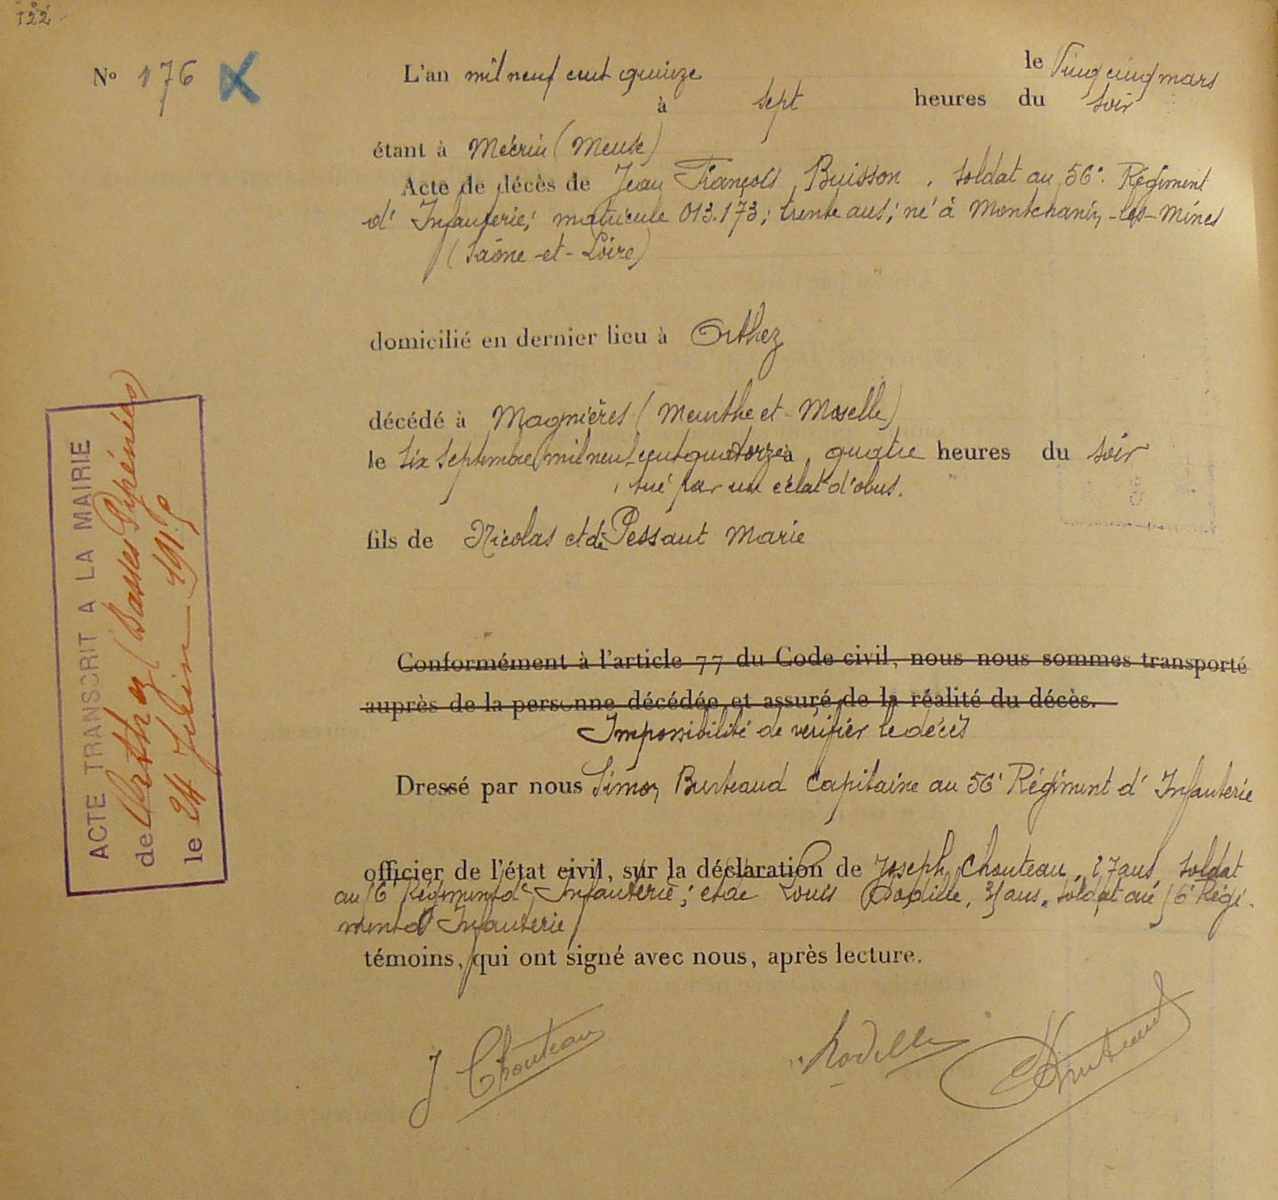 122
N° 176
L'an mil neuf cent quinze le Vingt cinq mars
à sept heures du soir
étant à Mécrin (Meuse)
Acte de décès de Jean François Buisson, soldat au 56e Régiment
d'Infanterie, matricule 013.173; trente ans; né à Montchanin-les-Mines
(Saône-et-Loire)
domicilié en dernier lieu à Orthez
décédé à Magnières (Meurthe et Moselle)
le six septembre mil neuf cent quatorze à quatre heures du soir
, tué par un éclat d'obus.
fils de Nicolas et de Pessaut Marie
Conformément à l'article 77 du Code civil, nous nous sommes transporté
auprès de la personne décédée et assuré de la réalité du décès.
Impossibilité de vérifier le décès
Dressé par nous Simon Burteaud Capitaine au 56e Régiment d'Infanterie
officier de l'état civil, sur la déclaration de Joseph Chouteau, 27 ans, soldat
au 56e Régiment d'Infanterie; et de Louis Rodille, ans, soldat au 56e Régi-
ment d'Infanterie
témoins, qui ont signé avec nous, après lecture.
J Chouteau
Rodille
Burteaud
ACTE TRANSCRIT A LA MAIRIE
de Orthez (Basses Pyrénées)
le 24 Juin